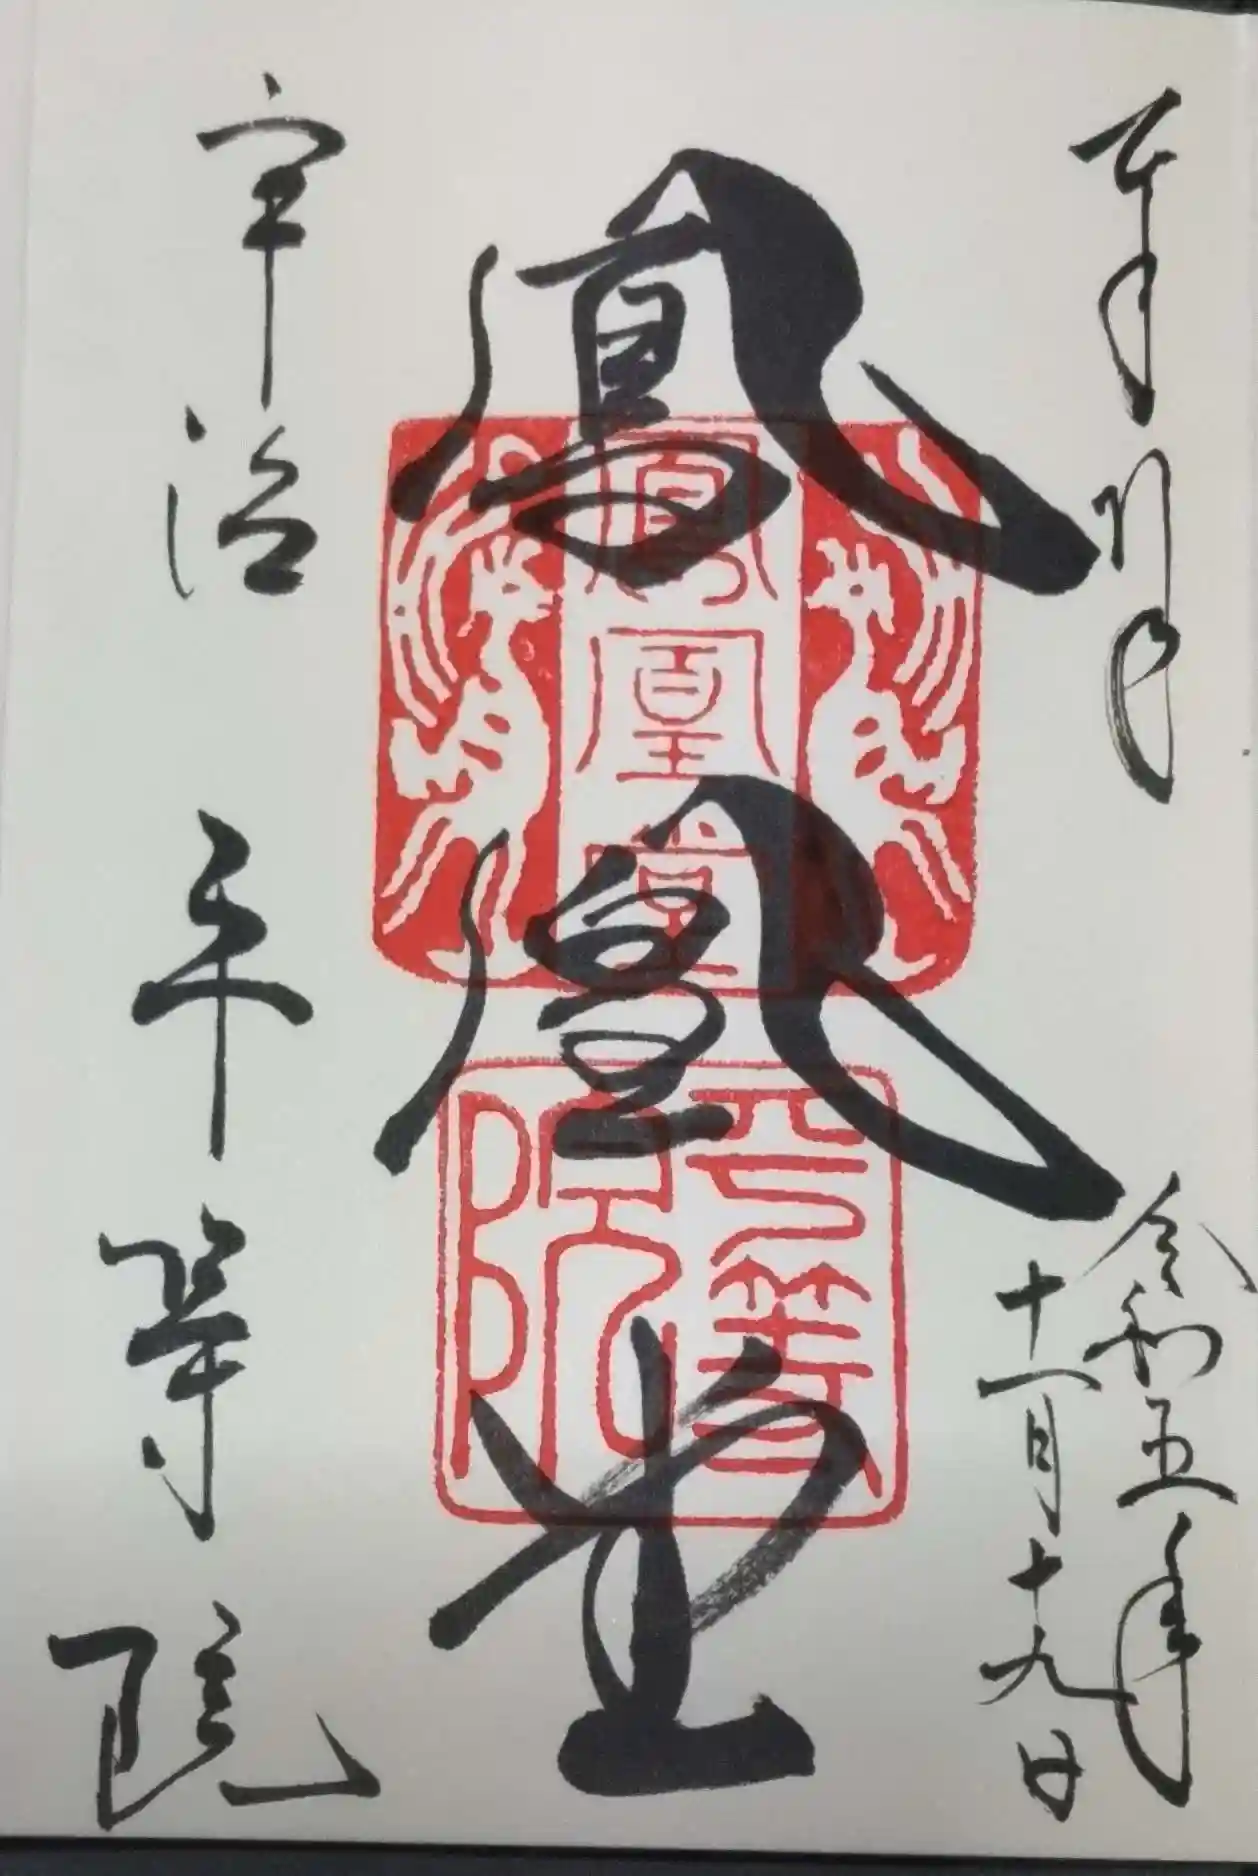 奉拝
令和五年
十一月十九日
鳳凰堂
鳳凰堂
平等院
宇治 平等院